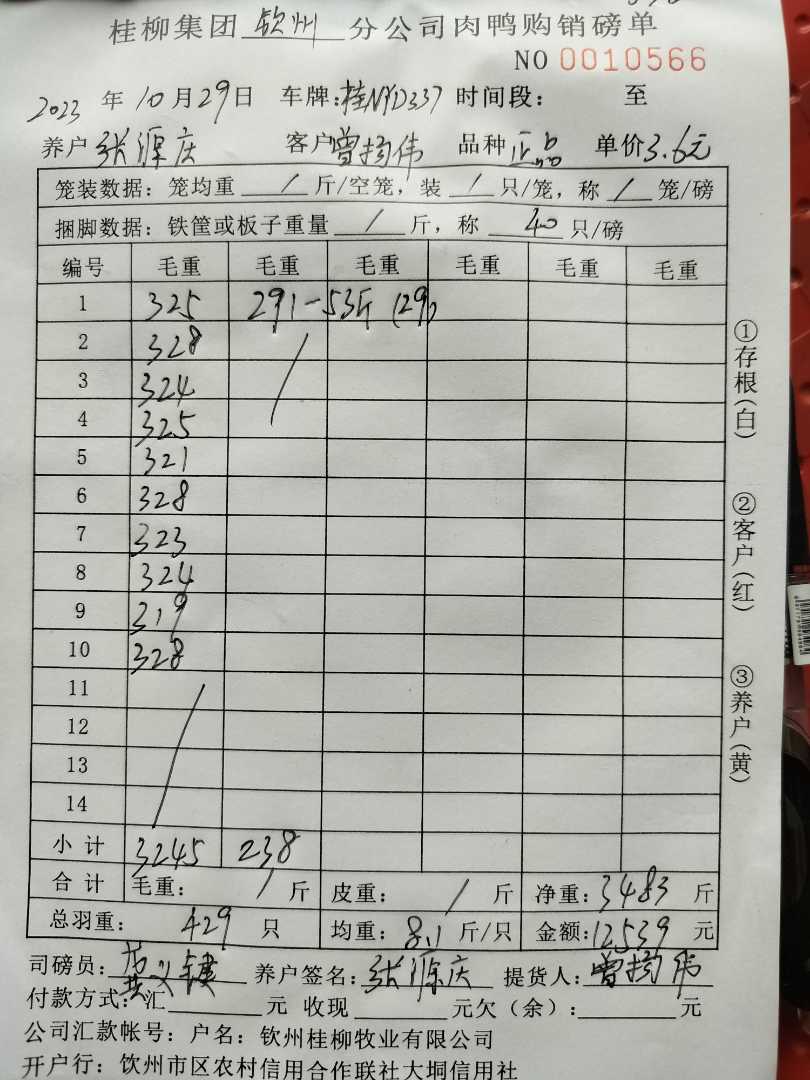 桂柳集团 钦州 分公司肉鸭购销磅单
NO 0010566
2023 年 10 月 29 日 车牌:桂NYD337 时间段: 至
养户 张源庆 客户 曾扬伟 品种 正品 单价 3.6元
笼装数据: 笼均重 / 斤/空笼, 装 / 只/笼, 称 / 笼/磅
捆脚数据: 铁筐或板子重量 / 斤, 称 40 只/磅
编号 毛重 毛重 毛重 毛重 毛重 毛重
1 325 291-53斤 (29)
2 328 /
3 324
4 325
5 321
6 328
7 323
8 324
9 319
10 328
11 /
12
13
14
小计 3245 238
合计 毛重: / 斤 皮重: / 斤 净重: 3483 斤
总羽重: 429 只 均重: 8.1 斤/只 金额: 12539 元
司磅员: 养户签名: 张源庆 提货人: 曾扬伟
付款方式: 汇 元 收现 元欠(余): 元
公司汇款帐号: 户名: 钦州桂柳牧业有限公司
开户行: 钦州市区农村信用合作联社大垌信用社
①存根(白)
②客户(红)
③养户(黄)